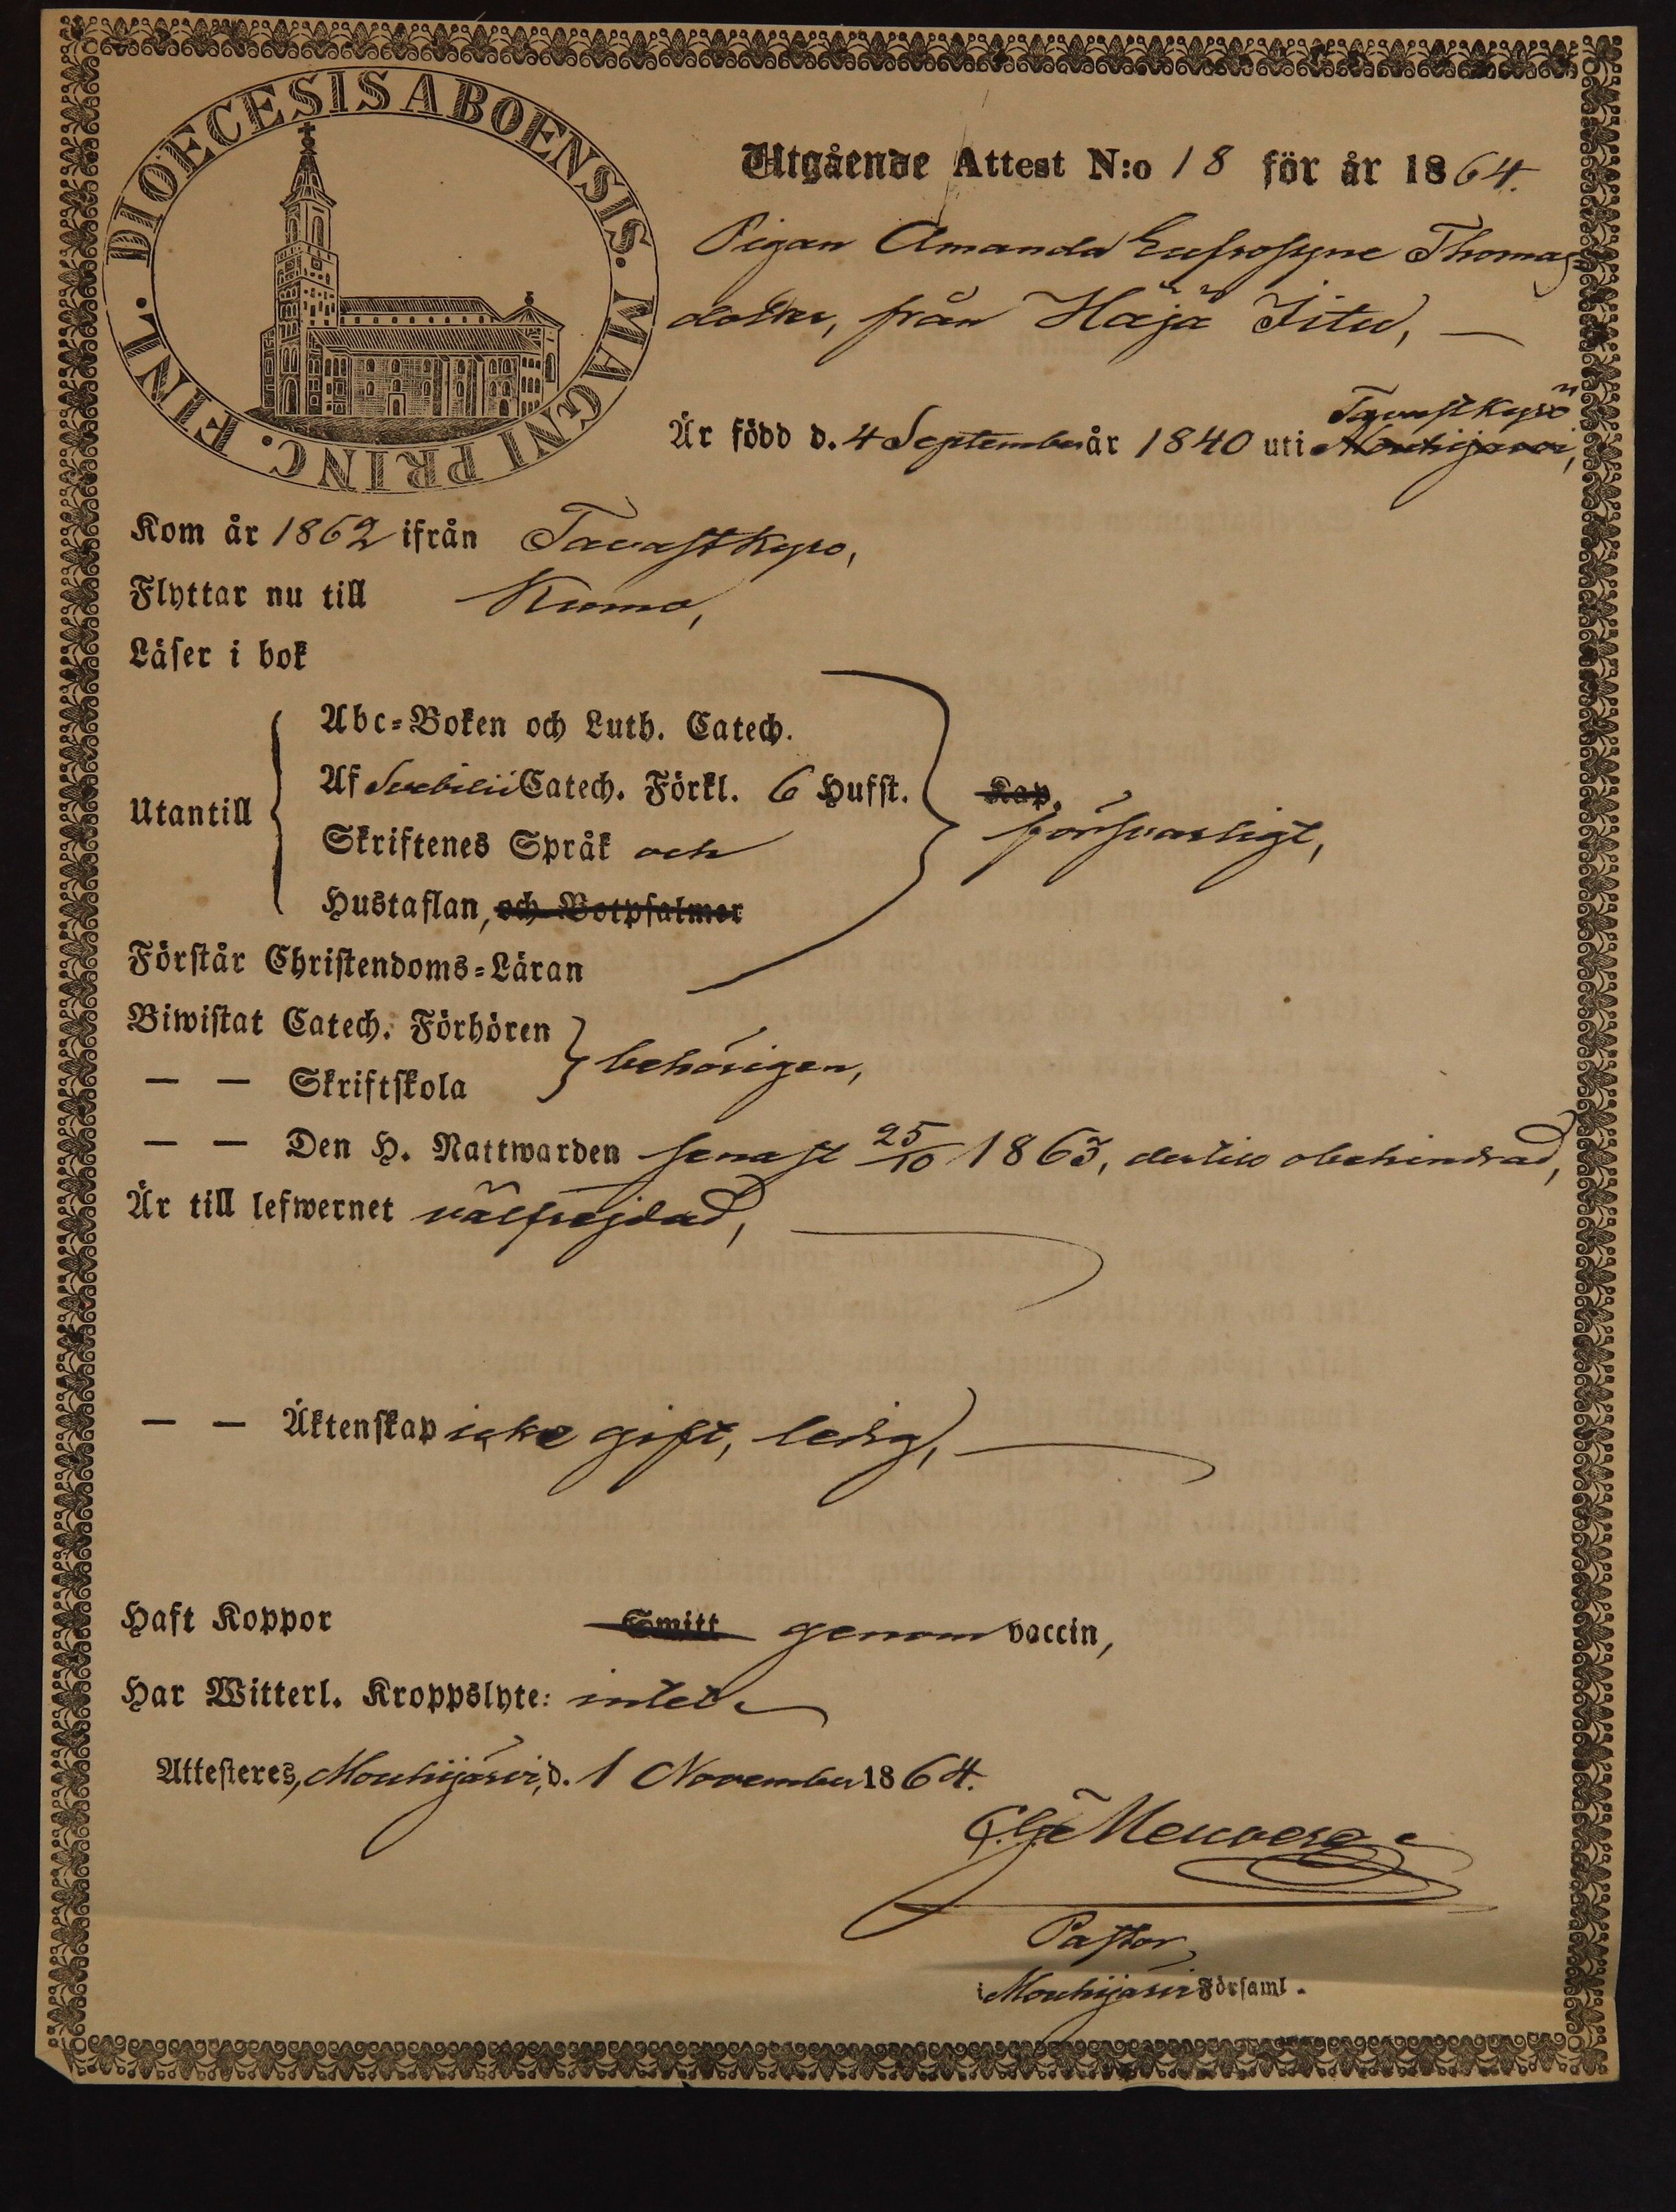 DIOECESIS ABOENSIS. MAGNI PRINC. FINL.
Utgående Attest N:o 18 för år 1864.
Pigan Amanda Eufrosyne Thomas
dotter, från Häijä
Är född d. 4 September år 1840 uti Mouhijärvi,
Tavastkyrö
Kom år 1862 ifrån Tavastkyro,
Flyttar nu till Kumo,
Läser i bok
Abc-Boken och Luth. Catech.
Utantill
Af Svebilii Catech. Förkl. 6 Hufst. Kap.
Skriftenes Språk och försvarligt,
Hustaflan, och Botpsalmer
Förstår Christendoms-Läran
Biwistat Catech. Förhören
— — Skriftskola behörigen,
— — Den H. Nattwarden senast 25/10 1863, dertill obehindrad,
Är till lefwernet välfrejdad,
— — Äktenskap icke gift, ledig,
Haft Koppor Smitt genom vaccin,
Har Witterl. Kroppslyte: intet
Attesteres, Mouhijärvi, d. 1 November 1864.
Pastor
i Mouhijärvi Församl.